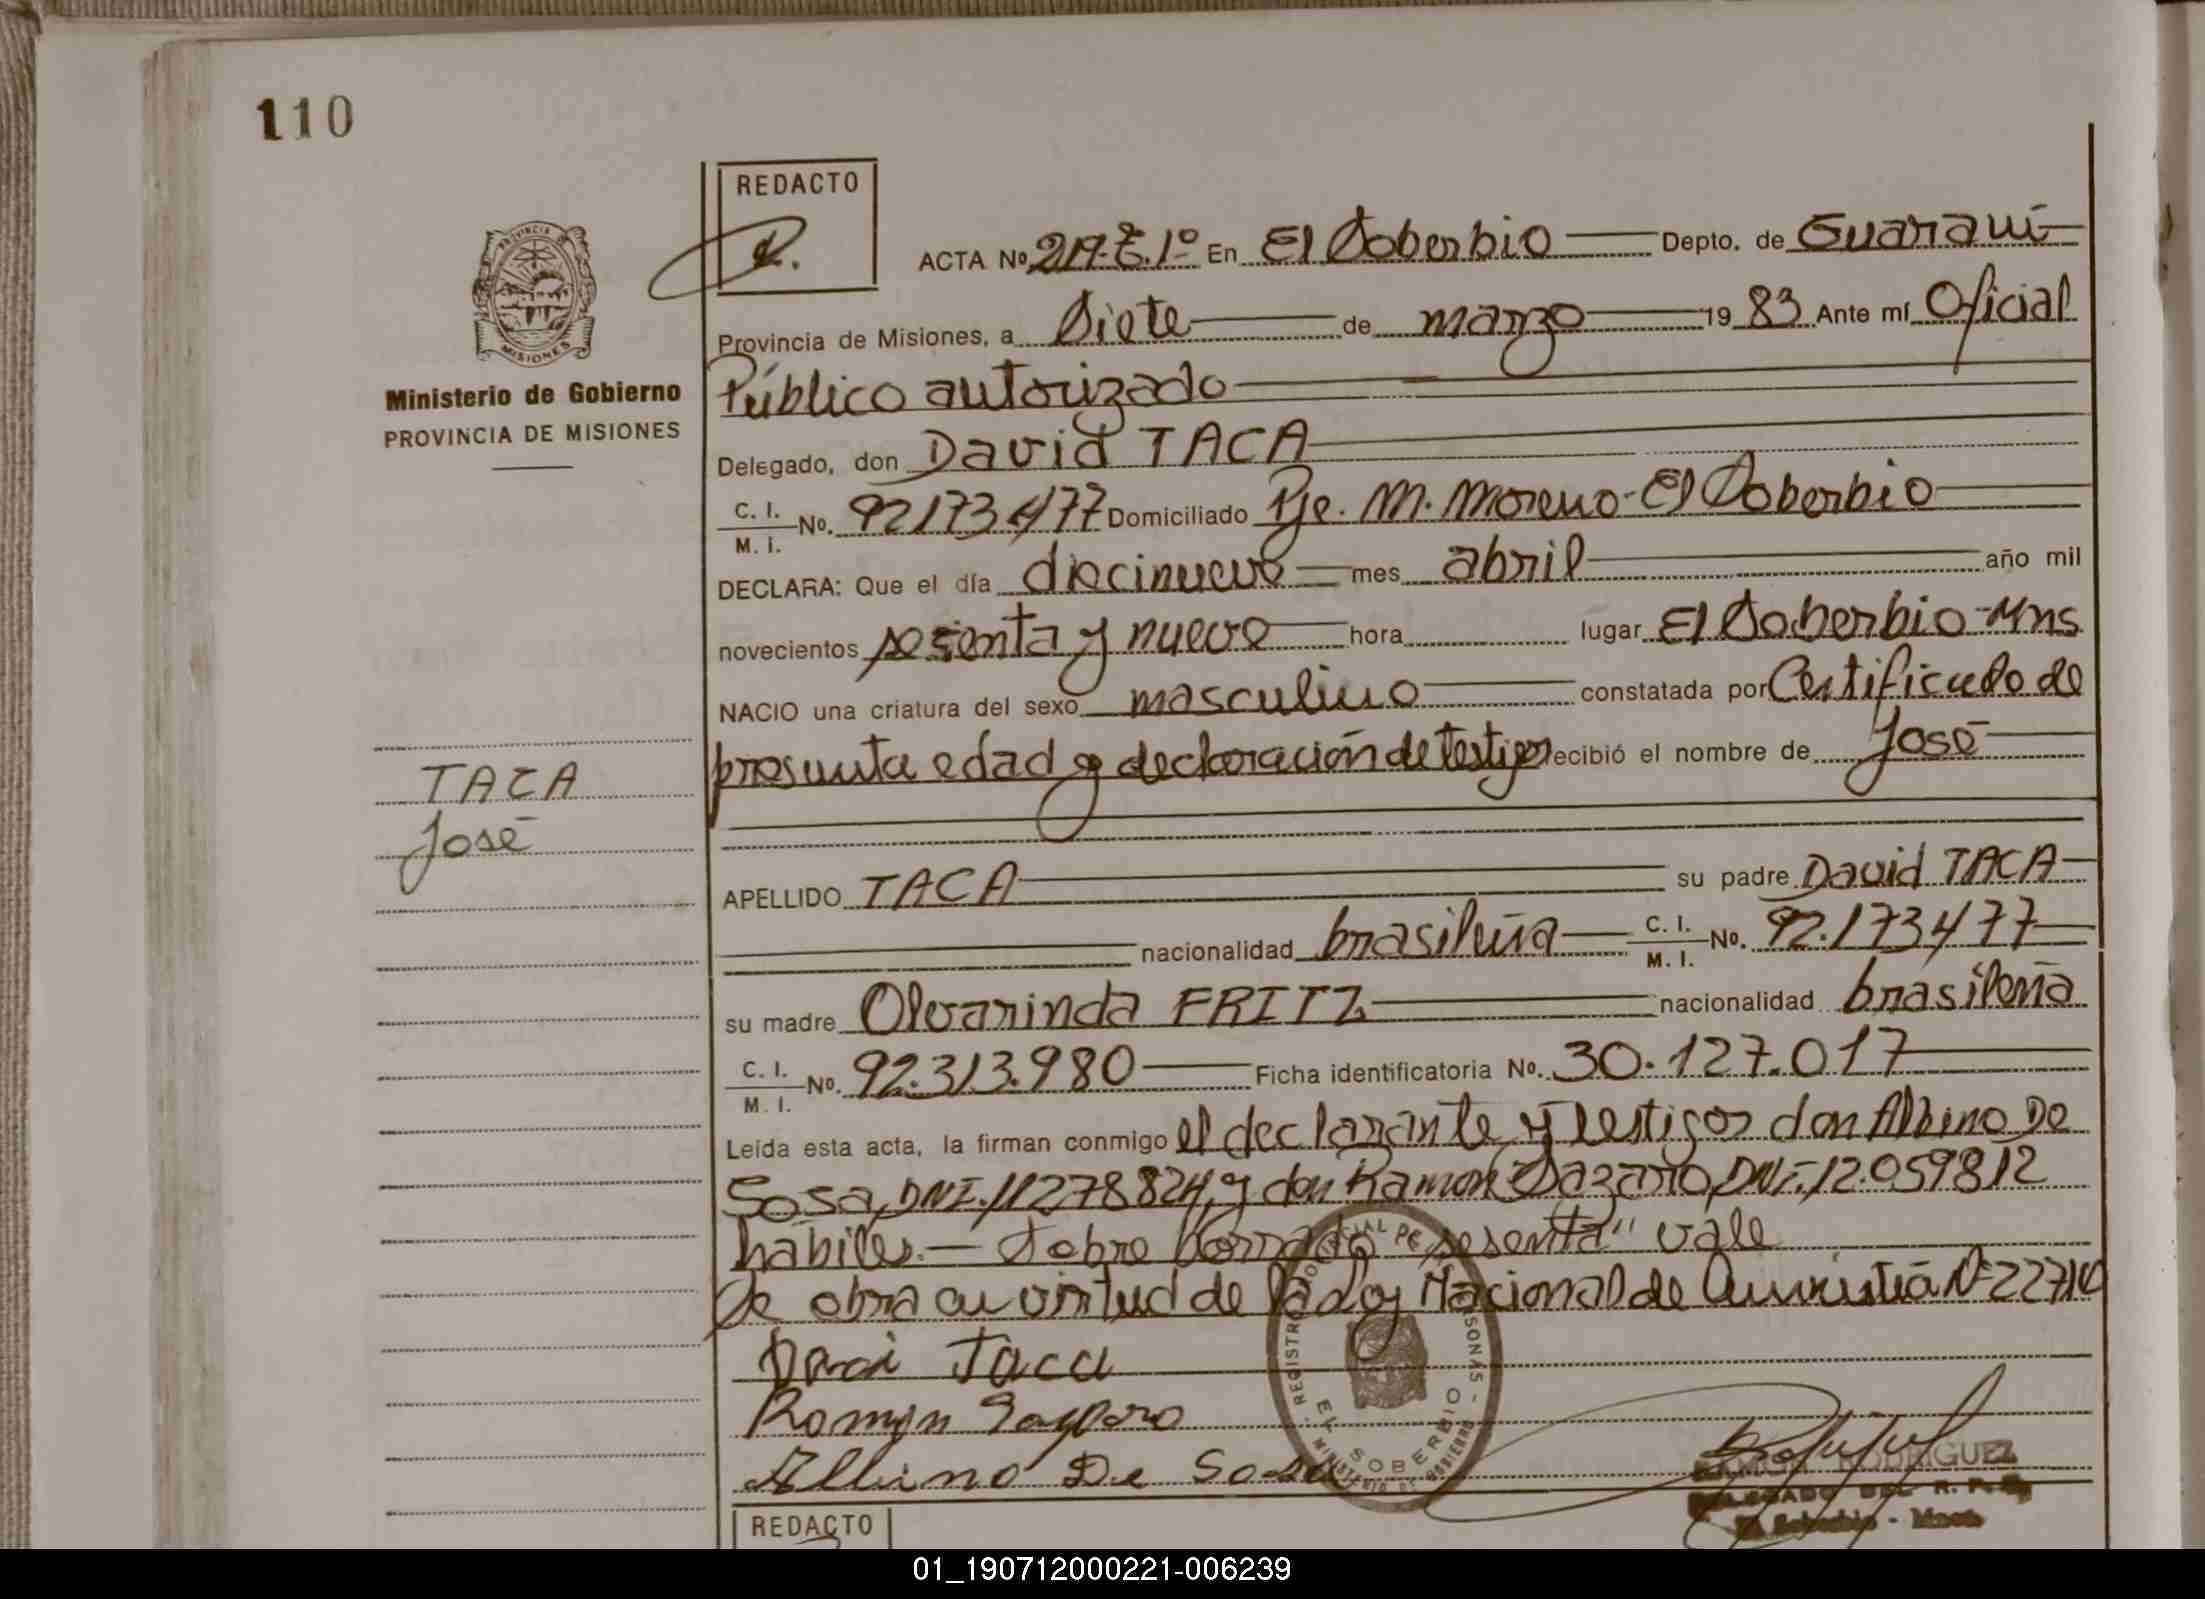 110
REDACTO
ACTA Nº 219.T.1º En El Soberbio Depto. de Guaraní
Provincia de Misiones, a Siete de marzo 1983 Ante mí Oficial
Ministerio de Gobierno
PROVINCIA DE MISIONES
Público autorizado
Delegado, don David TACA
C. I. / M. I. No. 92173477 Domiciliado Pje. M. Moreno-El Soberbio
DECLARA: Que el día diecinueve mes abril año mil
novecientos sesenta y nueve hora lugar El Soberbio-Mns
NACIO una criatura del sexo masculino constatada por Certificado de
presunta edad y declaración de testigos recibió el nombre de José
TACA
José
APELLIDO TACA su padre David TACA
nacionalidad brasileña C. I. / M. I. No. 92.173477
su madre Olvarinda FRITZ nacionalidad brasileña
C. I. / M. I. No. 92.313.980 Ficha identificatoria No. 30.127.017
Leída esta acta, la firman conmigo el declarante y testigos don Albino De
Sosa, DNI. 11278824, y don Ramon Gazaro, DNI. 12.059812
hábiles.— Sobre borrado "sesenta" vale
Se obra en virtud de la Ley Nacional de Amnistía Nº 22710
Taca
Ramon
Albino De Sosa
REGISTRO PROVINCIAL DE PERSONAS
EL SOBERBIO
MINISTERIO DE GOBIERNO
RODRIGUEZ
DELEGADO DEL R. P. P.
El Soberbio - Mnes
REDACTO
01_190712000221-006239